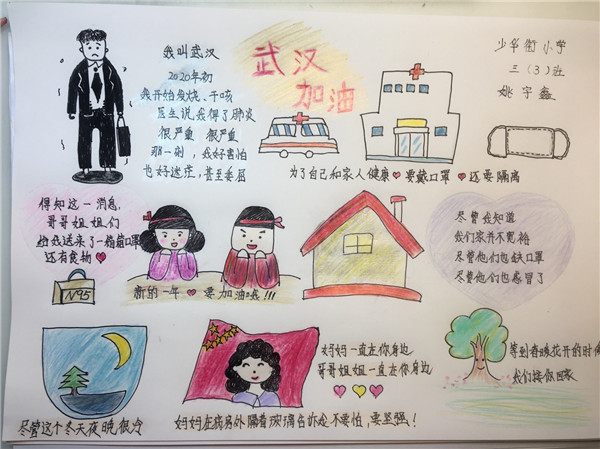 我叫武汉
2020年初
我开始发烧、干咳
医生说我得了肺炎
很严重 很严重
那一刻,我好害怕
也好迷茫,甚至委屈
武汉
加油
少华街小学
三(3)班
姚宇鑫
为了自己和家人健康❤要戴口罩❤还要隔离
得知这一消息,
哥哥姐姐们
给我送来了一箱箱口罩
还有食物❤
N95
新的一年❤要加油哦!!!
尽管我知道
我们家并不宽裕
尽管他们也缺口罩
尽管他们也感冒了
尽管这个冬天夜晚很冷
妈妈一直在你身边
哥哥姐姐一直在你身边
妈妈在病房外隔着玻璃告诉我不要怕,要坚强!
等到春暖花开的时候
我们接你回家